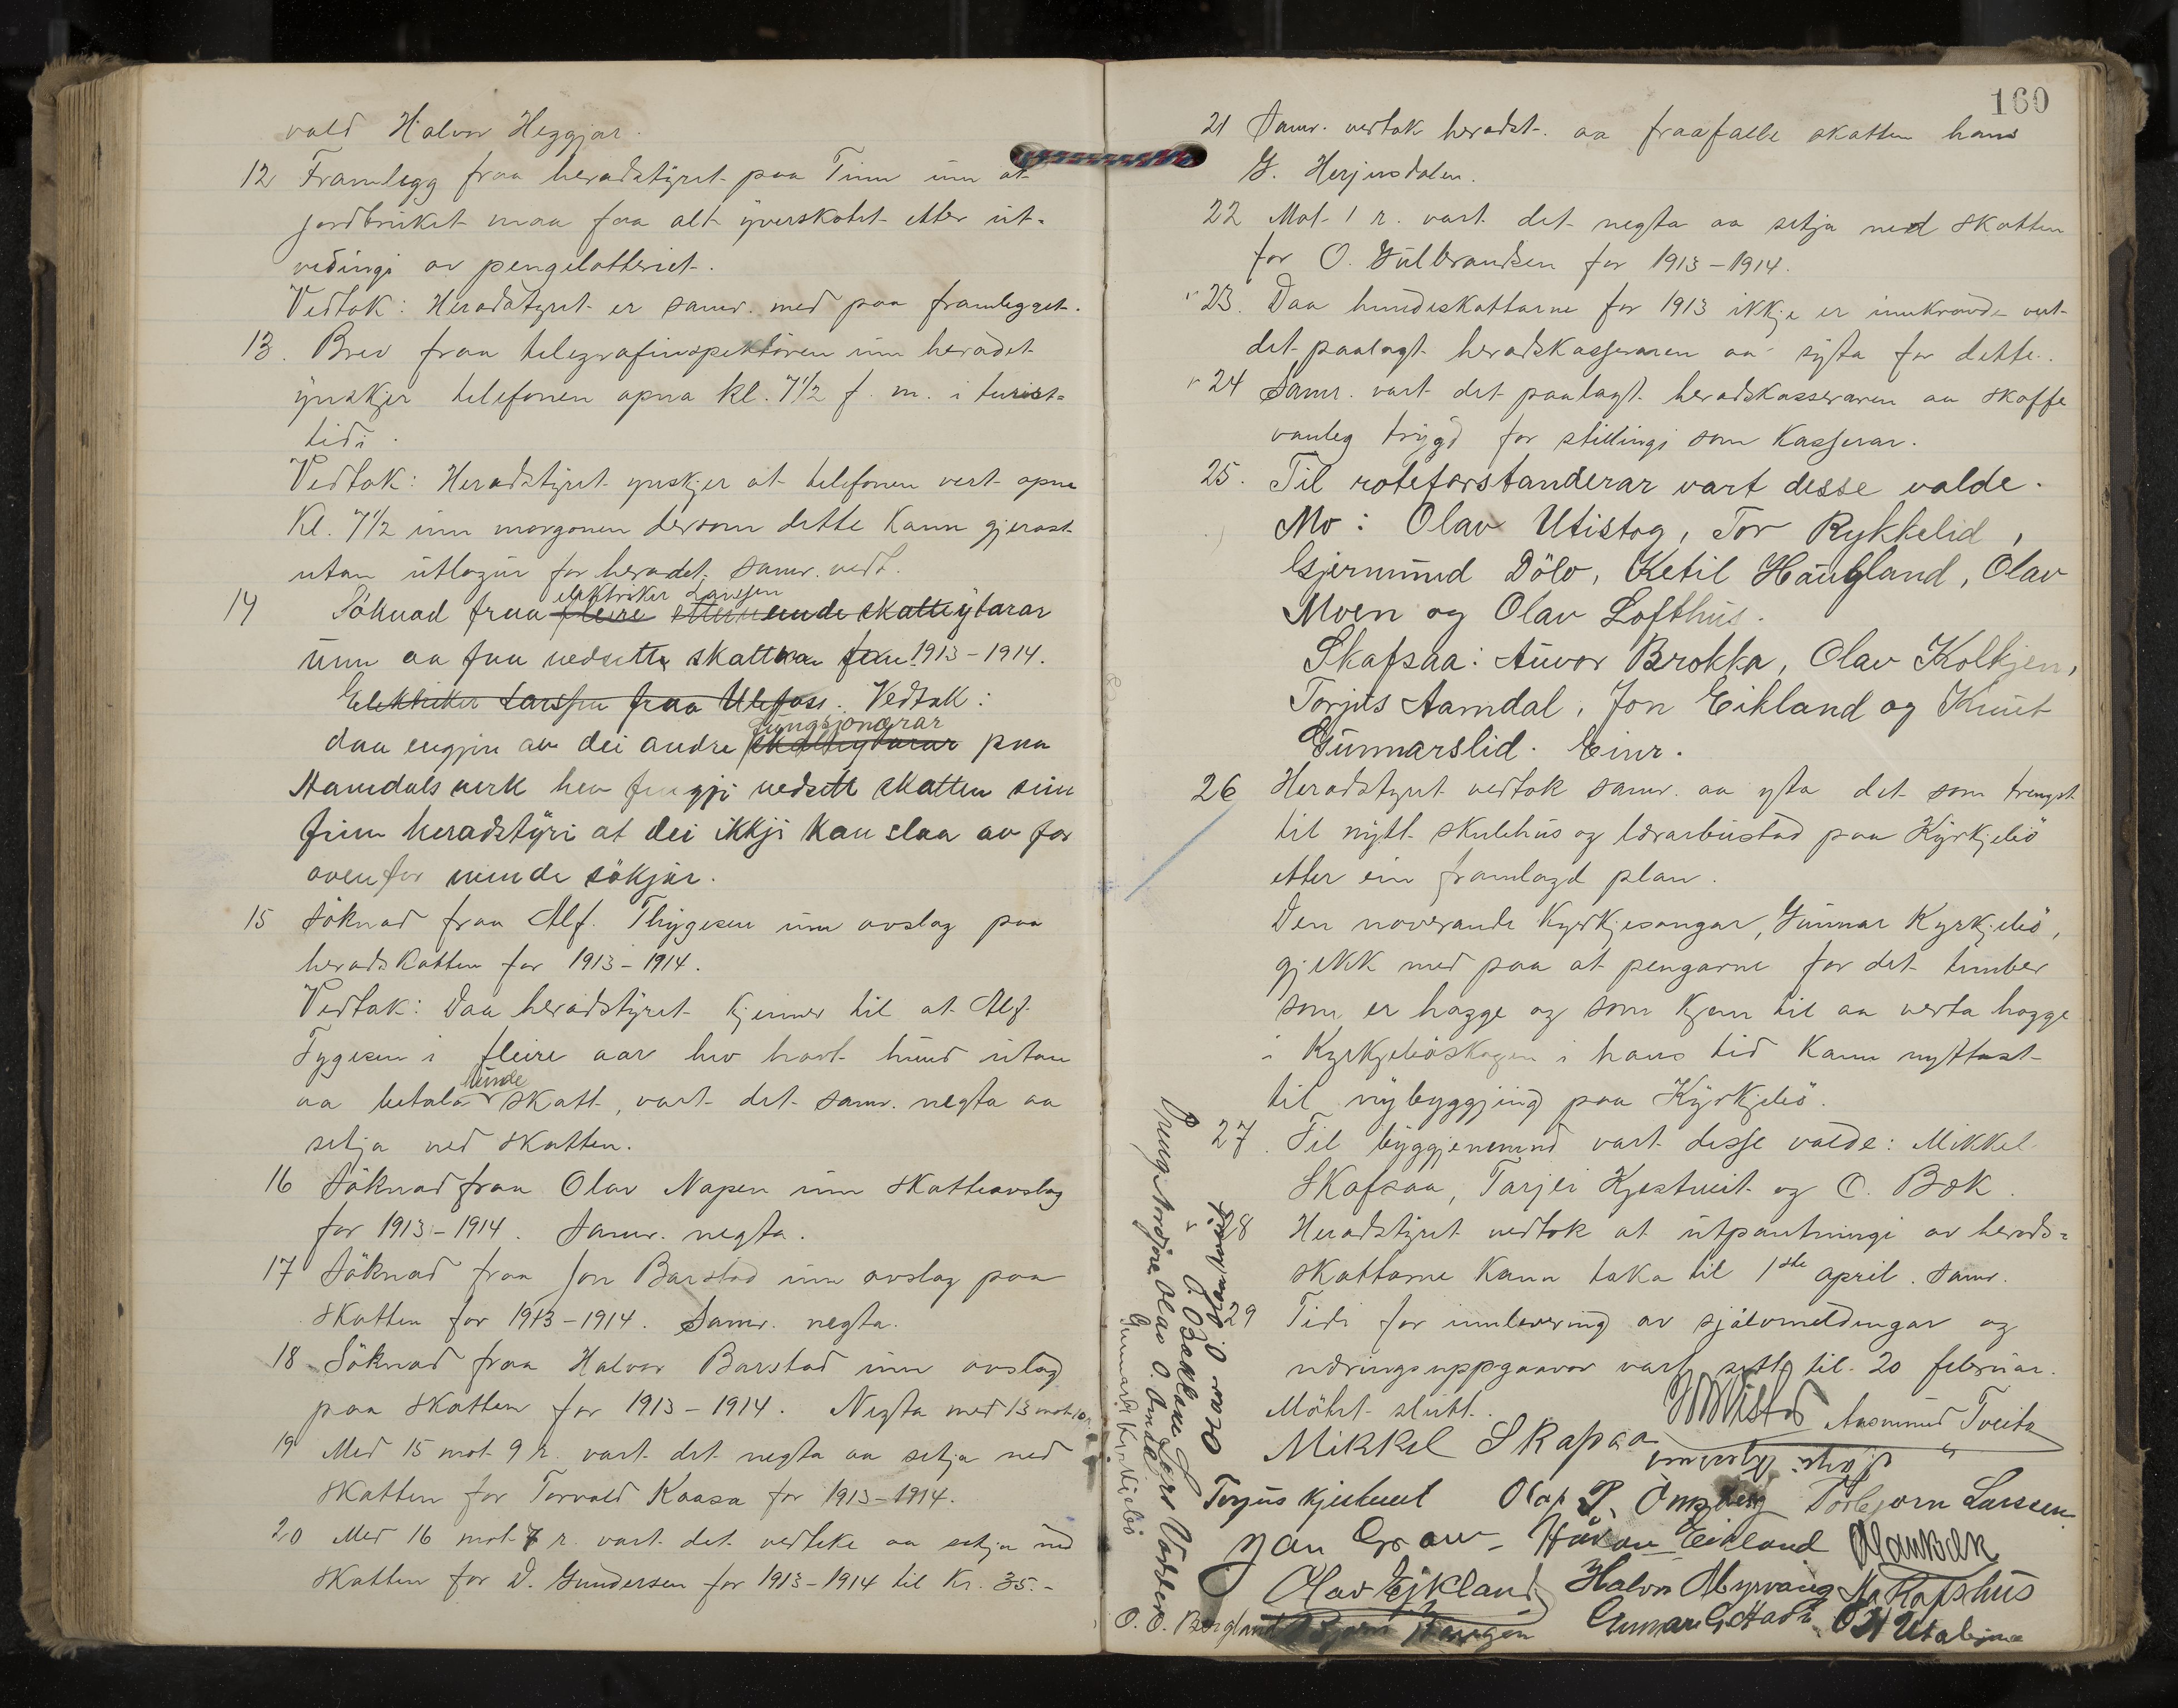 vald Halvor Heggjar.
12 Framlegg fraa heradstyret paa Tinn um at
jordbruket maa faa alt yverskotet etter ut-
redingi av pengelotteriet.
Vedtak: Heradstyret er samr. med paa framlegget.
13. Brev fraa telegrafinspektören um heradet
ynskjer telefonen opna kl. 7 1/2 f. m. i turist-
tidi.
Vedtak: Heradstyret ynskjer at telefonen vert opna
Kl. 7 1/2 um morgonen dersom dette kann gjerast
utan utlogur for heradet. samr. vedt.
elektriker Larssen
14 Söknad fraa fleire skatteytarar
um aa faa nedsett skatten 1913-1914.
Elektriker Larssen fraa Ulefoss. Vedtak:
fungsjonærar
daa engjin av dei andre skatteytarar paa
Aamdals verk hev fengji nedsett skatten sin
finn heradstyri at dei ikkji kan slaa av for
ovenfor sökjar.
15 Söknad fraa Alf. Thygesen um avslag paa
heradskatten for 1913-1914.
Vedtak: Daa heradstyret kjenner til at Alf.
Tygesen i fleire aar hev havt hund utan
hunde
aa betala skatt, vart det samr. negta aa
setja ned skatten.
16 Söknad fraa Olav Napen um skatteavslag
for 1913-1914. Samr. negta.
17 Söknad fraa Jon Barstad um avslag paa
skatten for 1913-1914. Samr. negta.
18 Söknad fraa Halvor Barstad um avslag
paa skatten for 1913-1914. Negta med 13 mot 10 r.
19 Med 15 mot 9 r. vart det negta aa setja ned
skatten for Torvald Kaasa for 1913-1914.
20 Med 16 mot 7 r. vart det vedteke aa setja ned
skatten for D. Gundersen for 1913-1914 til Kr. 35.-
160
21 Samr. vedtok heradst. aa fraafalle skatten hans
G. Herjusdalen.
22 Mot 1 r. vart det negta aa setja ned skatten
for O. Gulbrandsen for 1913-1914.
23. Daa hundeskattarne for 1913 ikkje er innkravde vert
det paalagt heradskasseraren aa syta for dette.
24 Samr. vart det paalagt heradskasseraren aa skaffe
vanleg trygd for stillingi som kasserar.
25. Til roteforstanderar vart desse valde.
Mo: Olav Utistog, Tor Rykkelid,
Gjermund Dölo, Ketil Haugland, Olav
Moen og Olav Lofthus.
Skafsaa: Auvor Brokka, Olav Kolkjen,
Torjus Aamdal, Jon Eikland og Knut
Gunnarslid. Einr.
26 Heradstyret vedtok samr. aa yta det som trengst
til nytt skulehus og lærarbustad paa Kyrkjebö
etter ein framlagd plan.
Den noverande kyrkjesongar, Gunnar Kyrkjebö,
gjekk med paa at pengarne for det timber
som er hogge og som kjem til aa verta hogge
i Kyrkjeböskogen i hans tid kann nyttast
til nybyggjing paa Kyrkjebö.
27. Til byggjenemnd vart desse valde: Mikkel
Skafsaa, Tarjei Kjestveit og O. Bæk.
28 Heradstyret vedtok at utpantningi av herads-
skattarne kann taka til 1ste april. Samr.
29 Tidi for innlevering av sjölvmeldingar og
næringsuppgaavor vart sett til 20 februar.
Mötet slutt.
Aasmund Tveito
Mikkel Skafsaa
Torjus Kjestveit Olaf P. Torbjorn Larssen
Jan Graw Håvan Eikland
Olav Ejkland Halvor Myrvang
O. O. Bergland Gunnar
Olav O. Omdal
Gunnar Kirkjebö